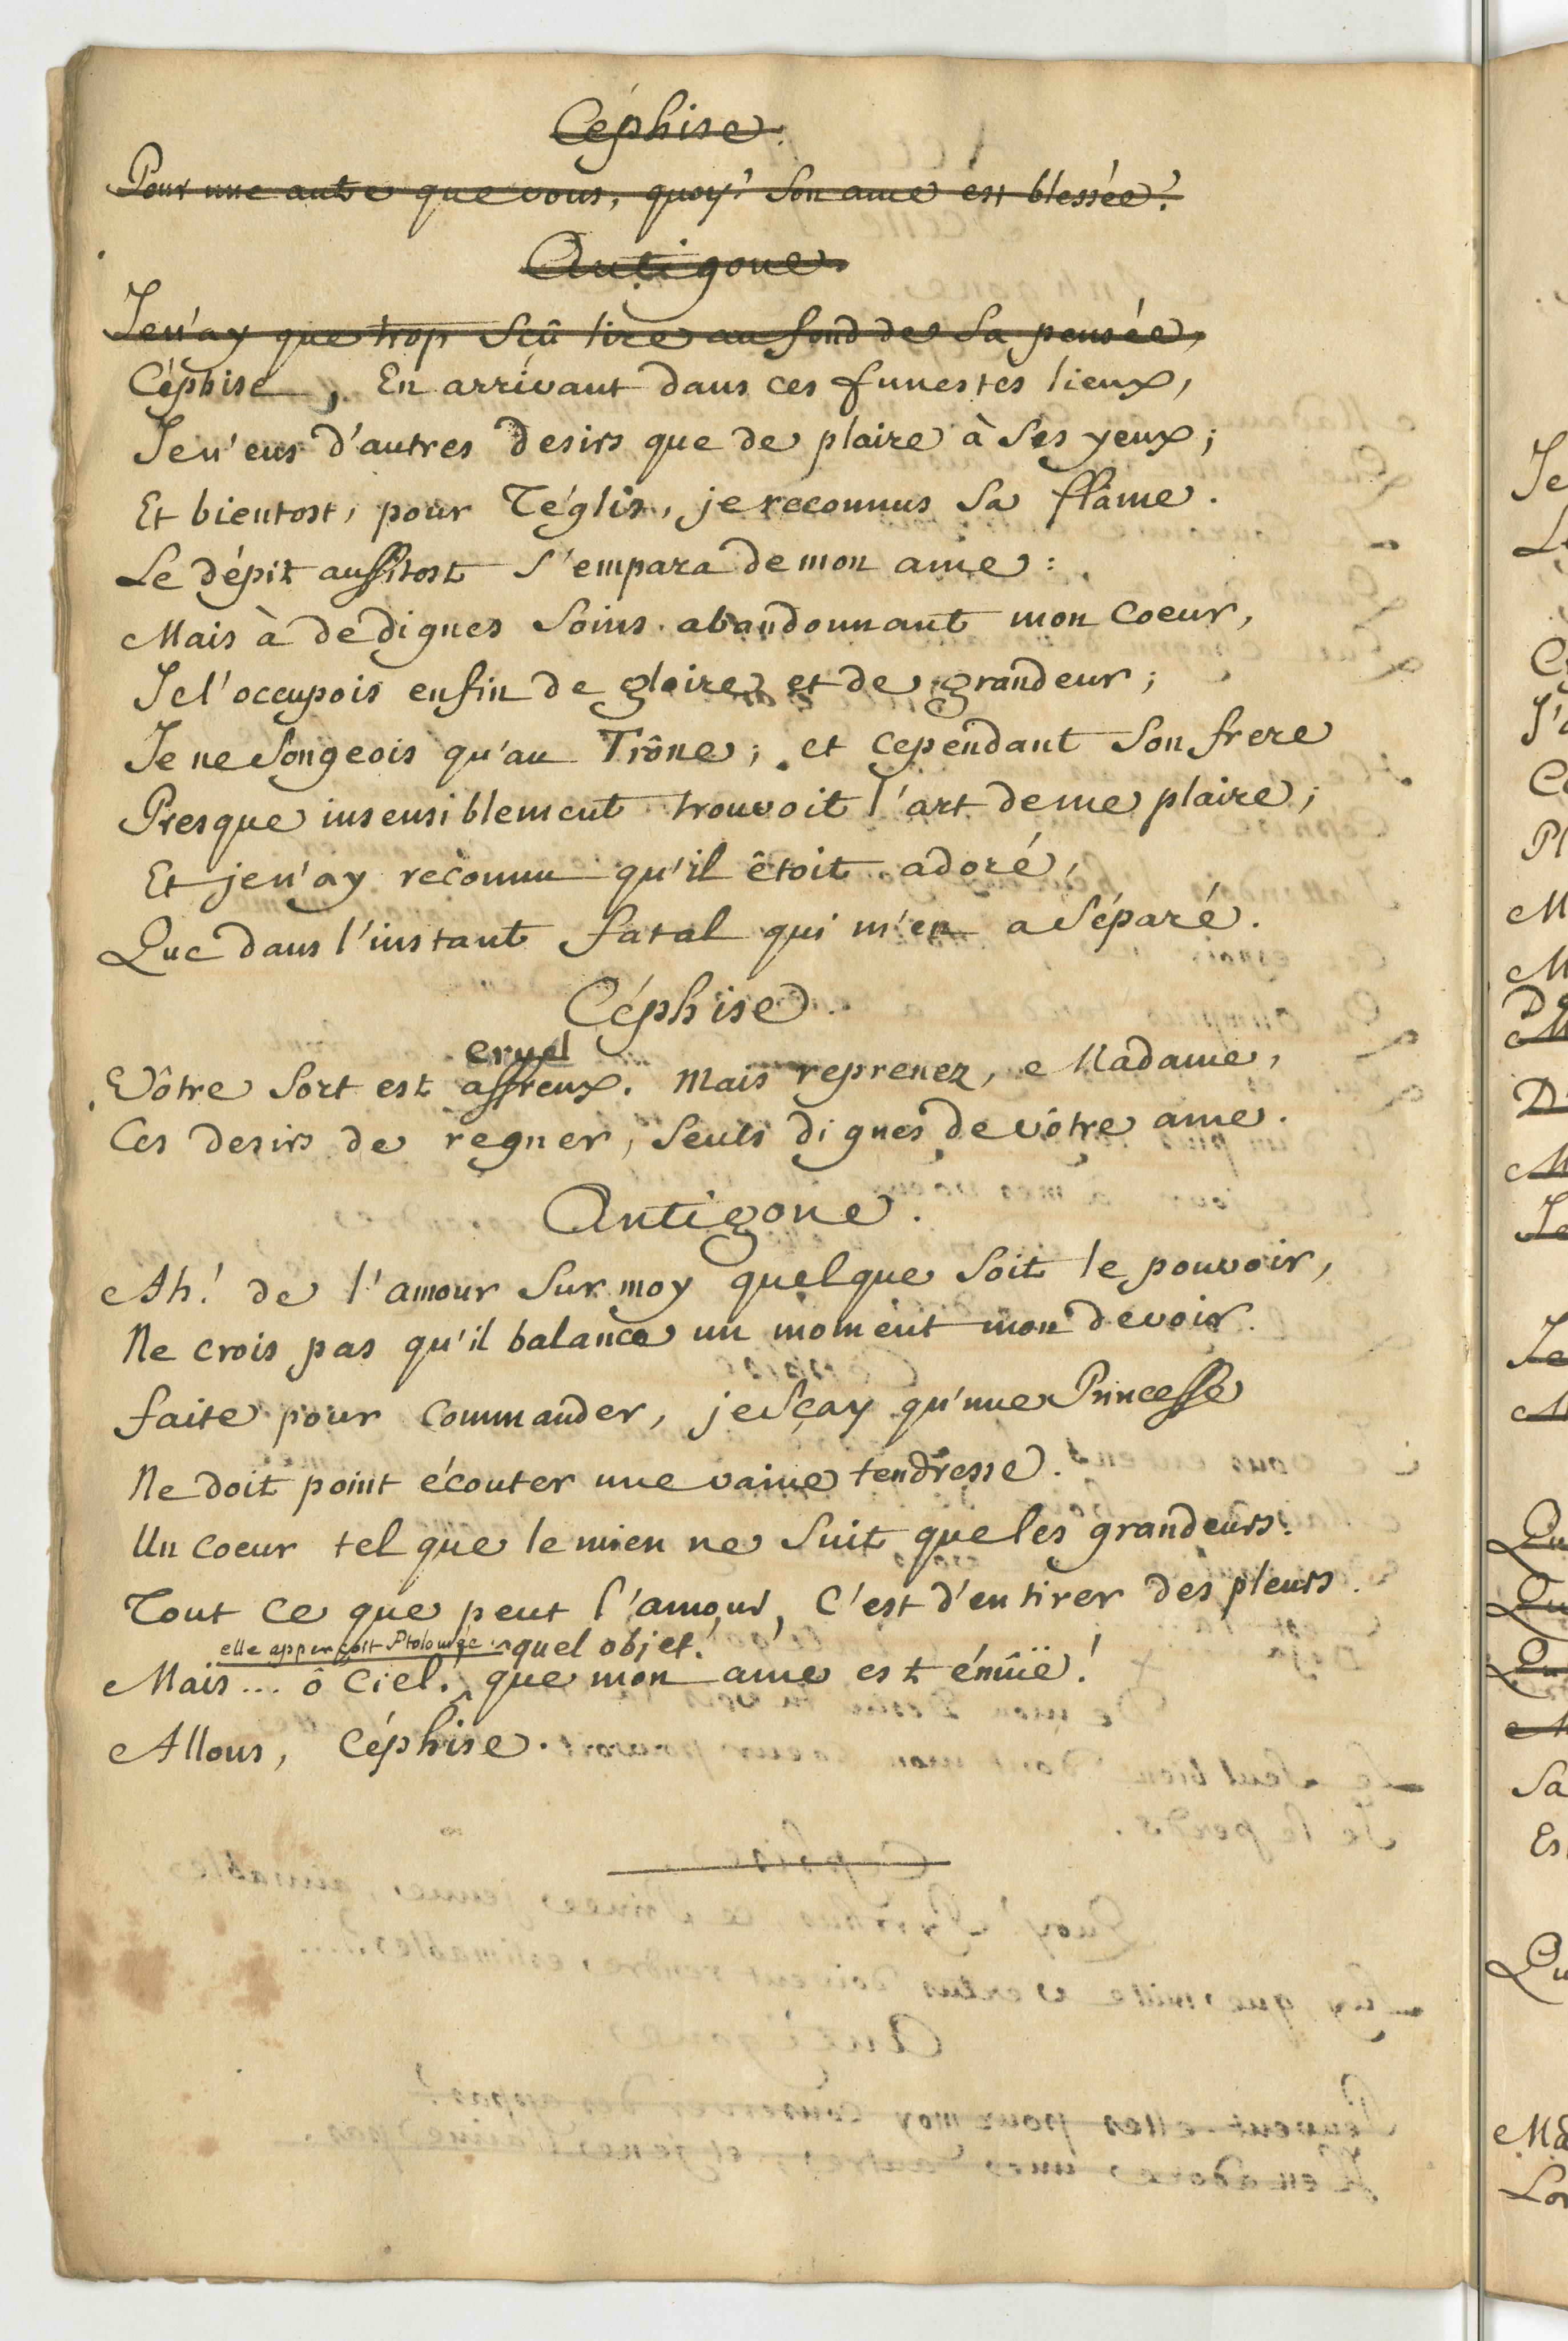 Céphise.
Pour une autre que vous, quoy? Son ame est blessée?
Antigone.
Je n'ay que trop Sçû lire au fond de Sa pensée,
Céphise, En arrivant dans ces funestes lieux,
Je n'eus d'autres desirs que de plaire à Ses yeux;
Et bientost, pour Téglis, je reconnus Sa flâme.
Le dépit aussitost S'empara de mon ame:
Mais à de dignes Soins abandonnant mon Coeur,
Je l'occupois enfin de gloire, et de grandeur;
Je ne Songeois qu'au Trône; et cependant Son frere
Presque insensiblement trouvoit l'art de me plaire;
Et je n'ay reconnu qu'il êtoit adoré,
Que dans l'instant fatal qui m'en a Séparé.
Céphise.
cruel
Vôtre Sort est affreux. Mais reprenez, Madame,
Ces desirs de regner, Seuls dignes de vôtre ame.
Antigone.
Ah! de l'amour Sur moy quelque Soit le pouvoir,
Ne crois pas qu'il balance un moment mon devoir.
faite pour Commander, je Sçay qu'une Princesse
Ne doit point écouter une vaine tendresse.
Un Coeur tel que le mien ne Suit que les grandeurs.
Tout Ce que peut l'amour, C'est d'en tirer des pleurs.
elle apperçoit Ptolomée quel objet!
Mais... ô Ciel, que mon ame est émûë!
Allons, Céphise.